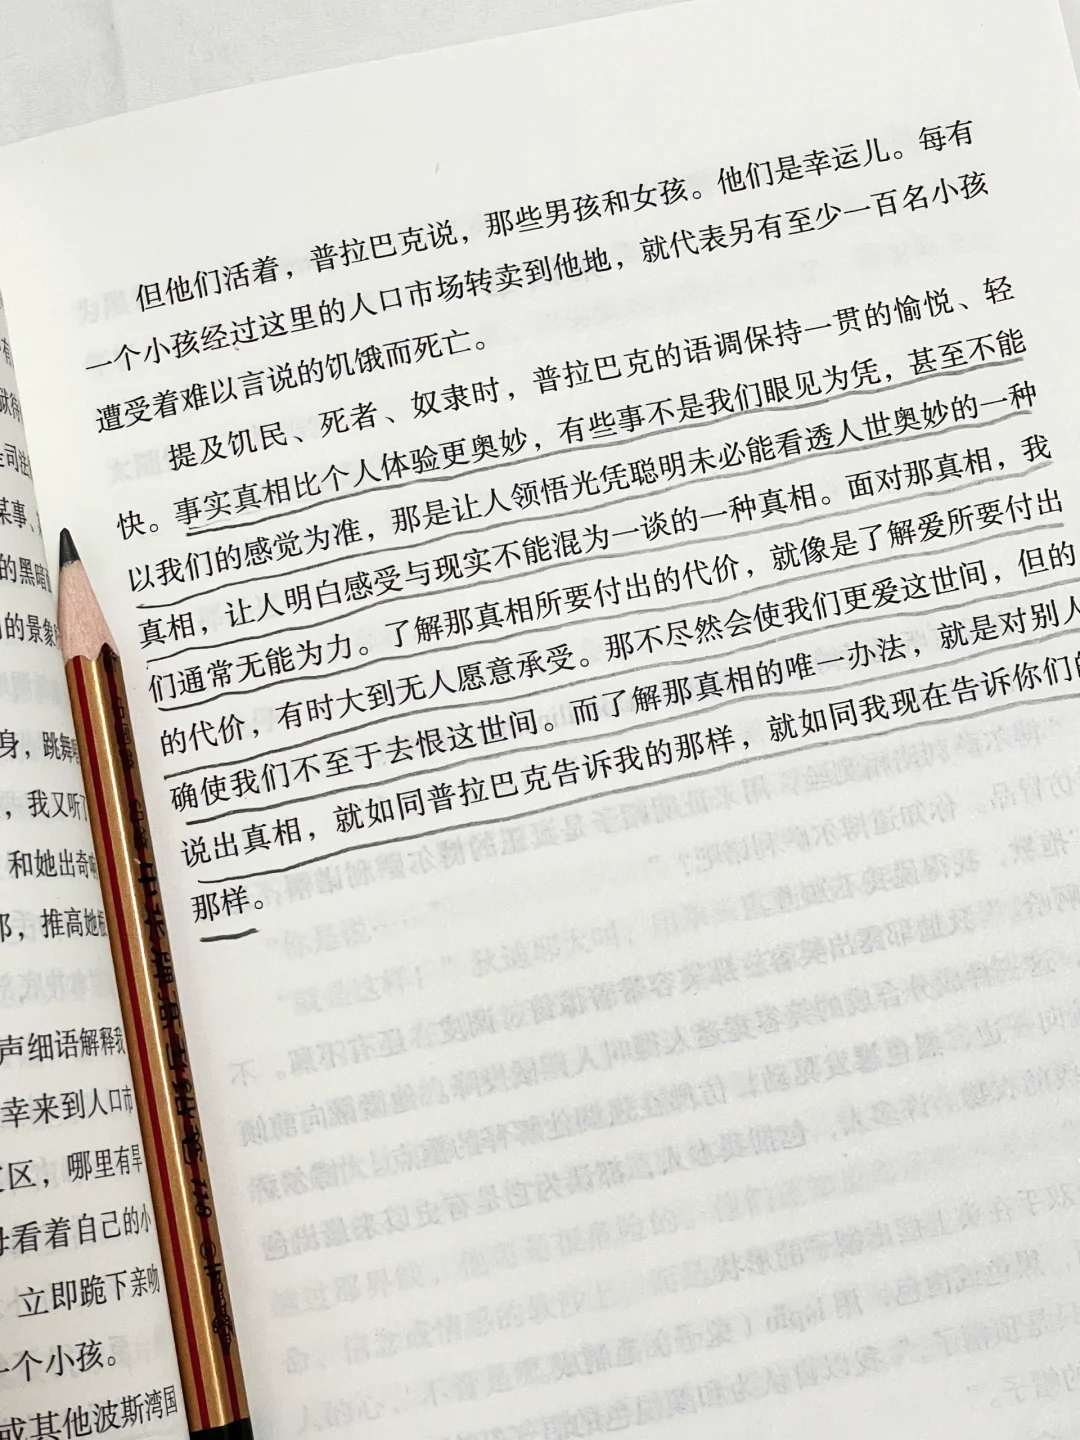 但他们活着，普拉巴克说，那些男孩和女孩。他们是幸运儿。每有
一个小孩经过这里的人口市场转卖到他地，就代表另有至少一百名小孩
遭受着难以言说的饥饿而死亡。
提及饥民、死者、奴隶时，普拉巴克的语调保持一贯的愉悦、轻
快。事实真相比个人体验更奥妙，有些事不是我们眼见为凭，甚至不能
以我们的感觉为准，那是让人领悟光凭聪明未必能看透人世奥妙的一种
真相，让人明白感受与现实不能混为一谈的一种真相。面对那真相，我
们通常无能为力。了解那真相所要付出的代价，就像是了解爱所要付出
的代价，有时大到无人愿意承受。那不尽然会使我们更爱这世间，但的
确使我们不至于去恨这世间。而了解那真相的唯一办法，就是对别人
说出真相，就如同普拉巴克告诉我的那样，就如同我现在告诉你们的
那样。
某事、
的黑暗
的景象
身，跳舞
，我又听
和她出奇
推高她
声细语解释我
幸来到人口市
区，哪里有旱
母看着自己的小
立即跪下亲吻
一个小孩。
或其他波斯湾国